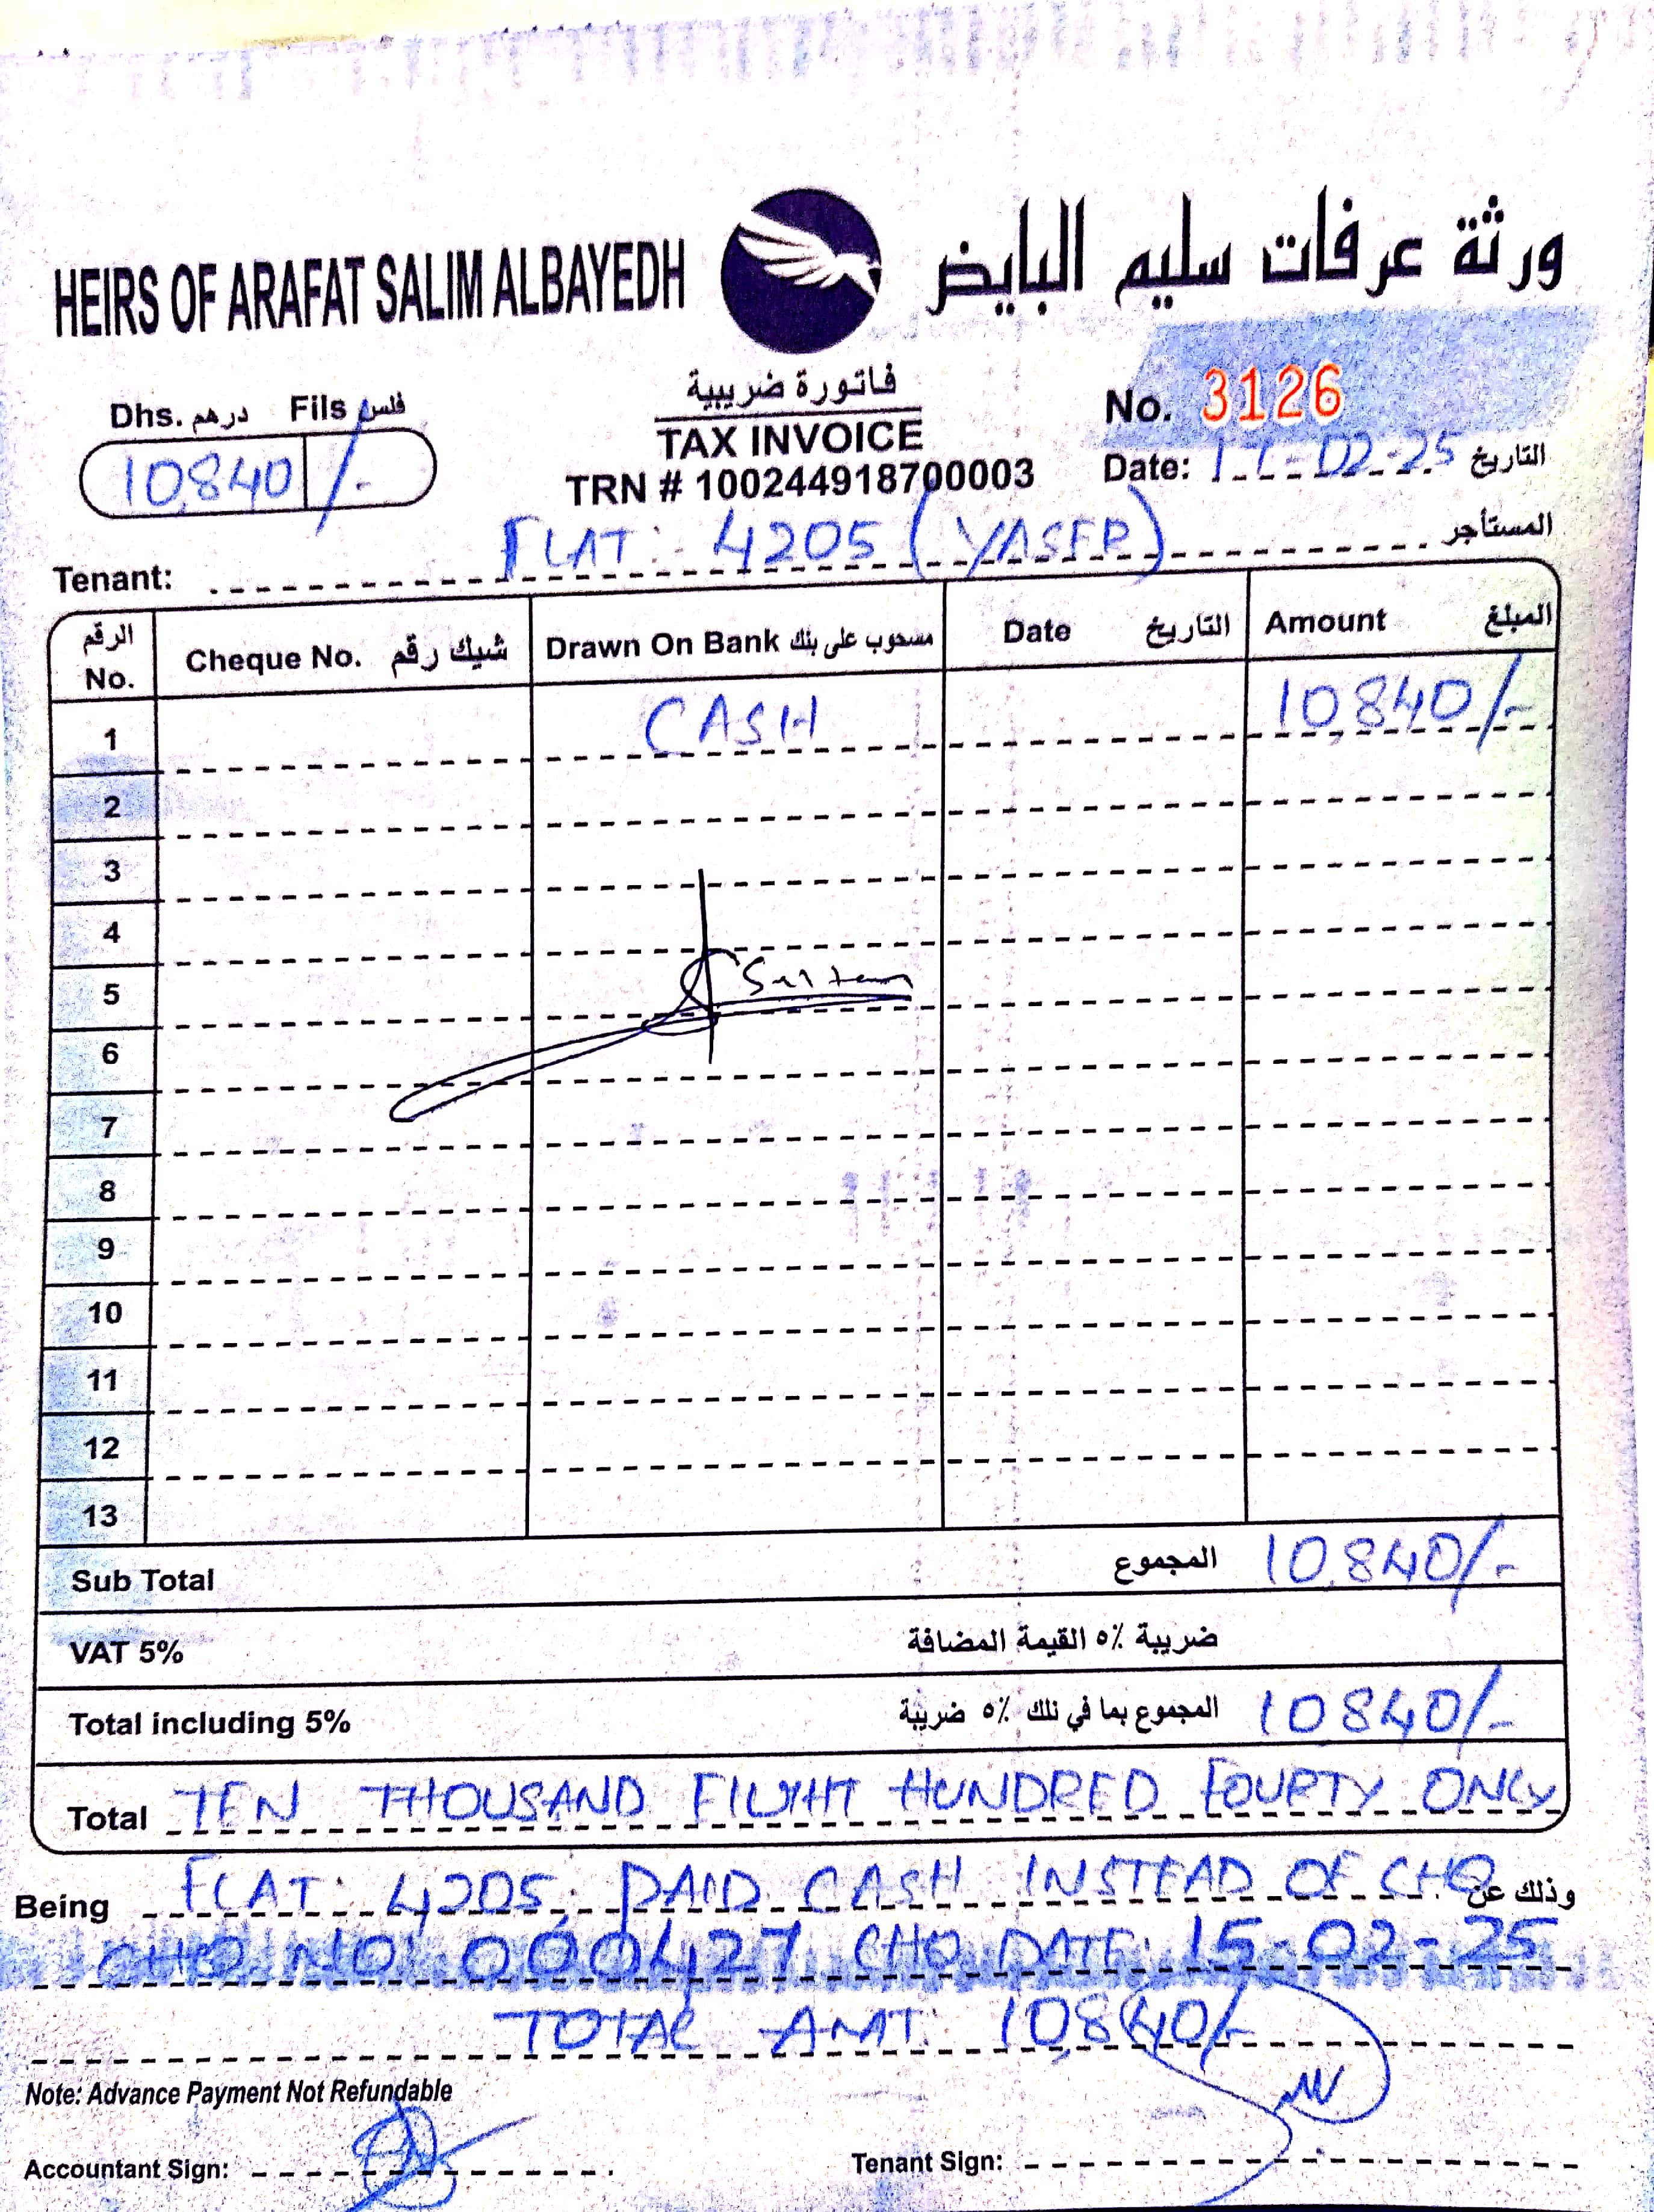 HEIRS OF ARAFAT SALIM ALBAYEDH ورثة عرفات سليم البايض
Dhs. درهم Fils فلس
10,840 /-
فاتورة ضريبية
TAX INVOICE
TRN # 100244918700003
No. 3126
Date: -02-25 التاريخ
Tenant: FLAT: 4205 (YASER) المستأجر
الرقم No. Cheque No. شيك رقم Drawn On Bank مسحوب على بنك Date التاريخ Amount المبلغ
1 CASH 10,840/-
2
3
4
5 Sultan
6
7
8
9
10
11
12
13
Sub Total المجموع 10,840/-
VAT 5% ضريبة ٥٪ القيمة المضافة
Total including 5% المجموع بما في ذلك ٥٪ ضريبة 10840/-
Total TEN THOUSAND EIGHT HUNDRED FOURTY ONLY
Being FLAT: 4205, PAID CASH INSTEAD OF CHQ وذلك عن
CHQ NO: 000427 CHQ DATE: 15-02-25
TOTAL AMT: 10,840/-
Note: Advance Payment Not Refundable
Accountant Sign: Tenant Sign: